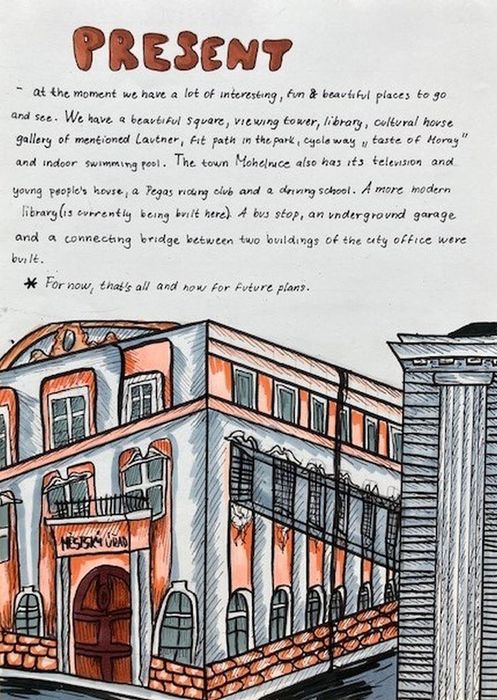 PRESENT
- at the moment we have a lot of interesting, fun & beautiful places to go
and see. We have a beautiful square, viewing tower, library, cultural house
gallery of mentioned Lautner, fit path in the park, cycleway „taste of Moray"
and indoor swimming pool. The town Mohelnice also has its television and
young people's house, a Pegas riding club and a driving school. A more modern
library (is currently being built here). A bus stop, an underground garage
and a connecting bridge between two buildings of the city office were
built.
* For now, that's all and now for future plans.
MĚSTSKÝ ÚŘAD